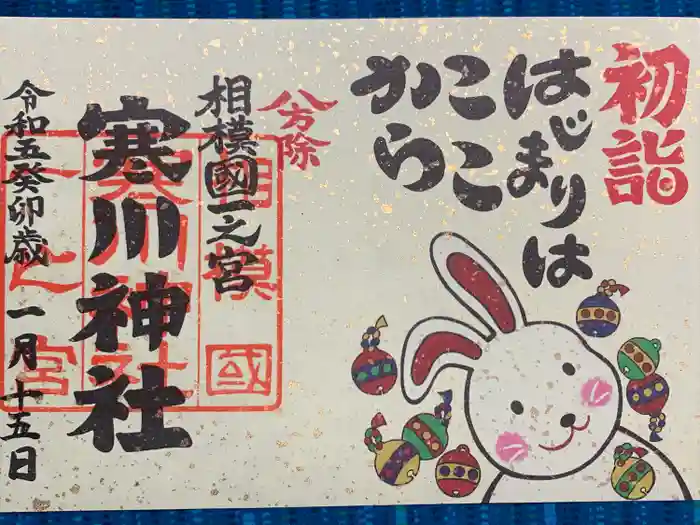 初詣
はじまりは
ここ
から
八方除
相模國一之宮
寒川神社
令和五癸卯歳 一月十五日
相模國
寒川神社
一之宮